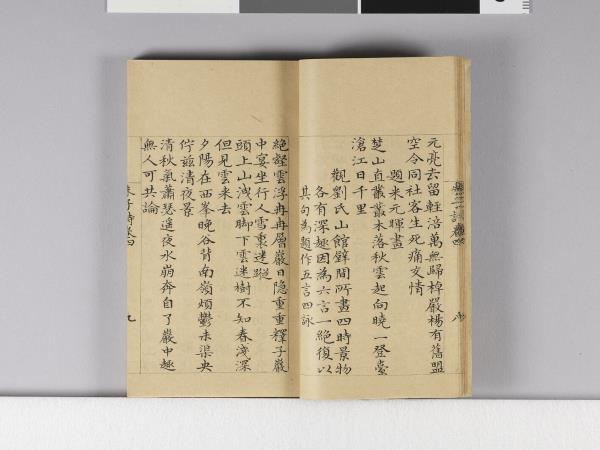 元亮去留輕涪萬無歸棹嚴楊有舊盟
空令同社客生死痛交情
題米元暉畫
楚山直叢叢木落秋雲起向曉一登臺
滄江日千里
觀劉氏山館壁間所畫四時景物
各有深趣因為六言一絕復以
其句為題作五言四詠
絕壑雲浮冉冉層巖日隱重重釋子巖
中宴坐行人雪裏迷蹤
頭上山洩雲脚下雲迷樹不知春淺深
但見雲來去
夕陽在西峯晚谷背南嶺煩鬱未渠央
佇茲清夜景
清秋氣蕭瑟遙夜水崩奔自了巖中趣
無人可共論
朱子詩卷四
九